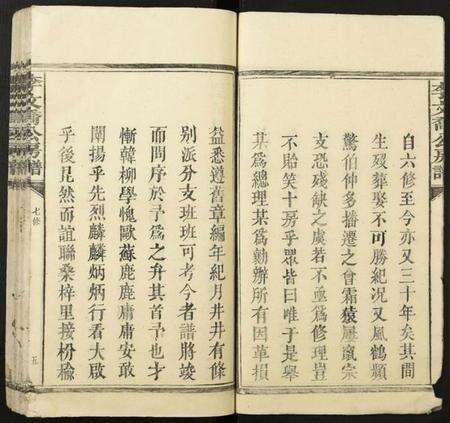 自六修至今亦又三十年矣其間
生歿葬娶不可勝紀況又風鶴頻
驚伯仲多播遷之曾霜猿屢
宗
支恐殘缺之虞若不亟爲修理豈
不貽笑十房乎眾皆曰唯于是舉
某爲總理某爲勷辦所有因革損
益悉遵舊章編年紀月井井有條
别派分支班班可考今者譜將竣
而問序於予爲之升其首予也才
慚韓柳學愧歐蘇鹿鹿庸庸安敢
闡揚乎先烈麟麟炳炳行看大啟
乎後昆然而誼聯桑梓里接枌榆
七修
五